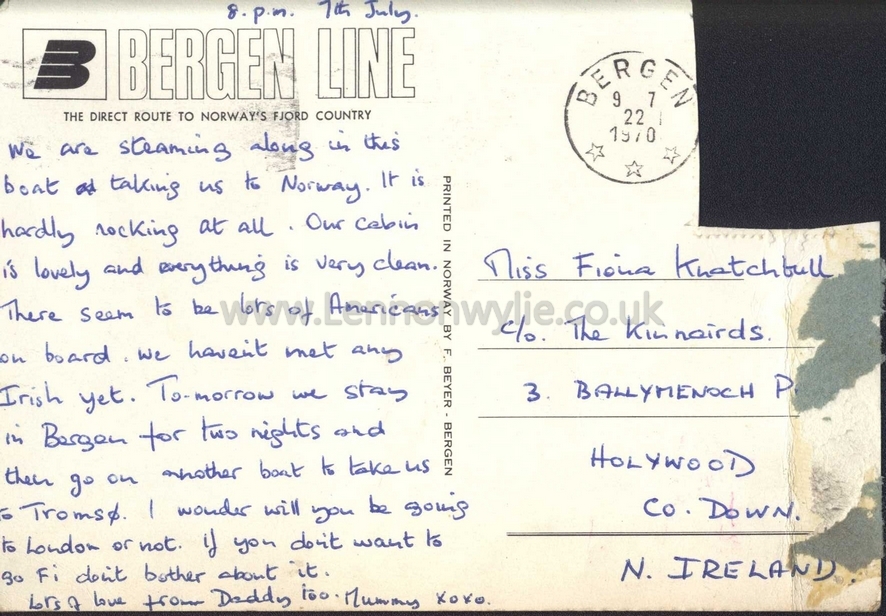 8. p.m. 7th July.
BERGEN LINE
THE DIRECT ROUTE TO NORWAY'S FJORD COUNTRY
We are steaming along in this
boat taking us to Norway. It is
hardly rocking at all. Our cabin
is lovely and everything is very clean.
There seem to be lots of Americans
on board. We haven't met any
Irish yet. To-morrow we stay
in Bergen for two nights and
then go on another boat to take us
to Tromsø. I wonder will you be going
to London or not. If you don't want to
go Fi don't bother about it.
Lots of love from Daddy too. Mummy xoxo.
PRINTED IN NORWAY BY F. BEYER - BERGEN
BERGEN
9 7
22
1970
Miss Fiona Knatchbull
c/o. The Kinnairds.
3. BALLYMENOCH P
HOLYWOOD
CO. DOWN.
N. IRELAND.
www.Lennonwylie.co.uk